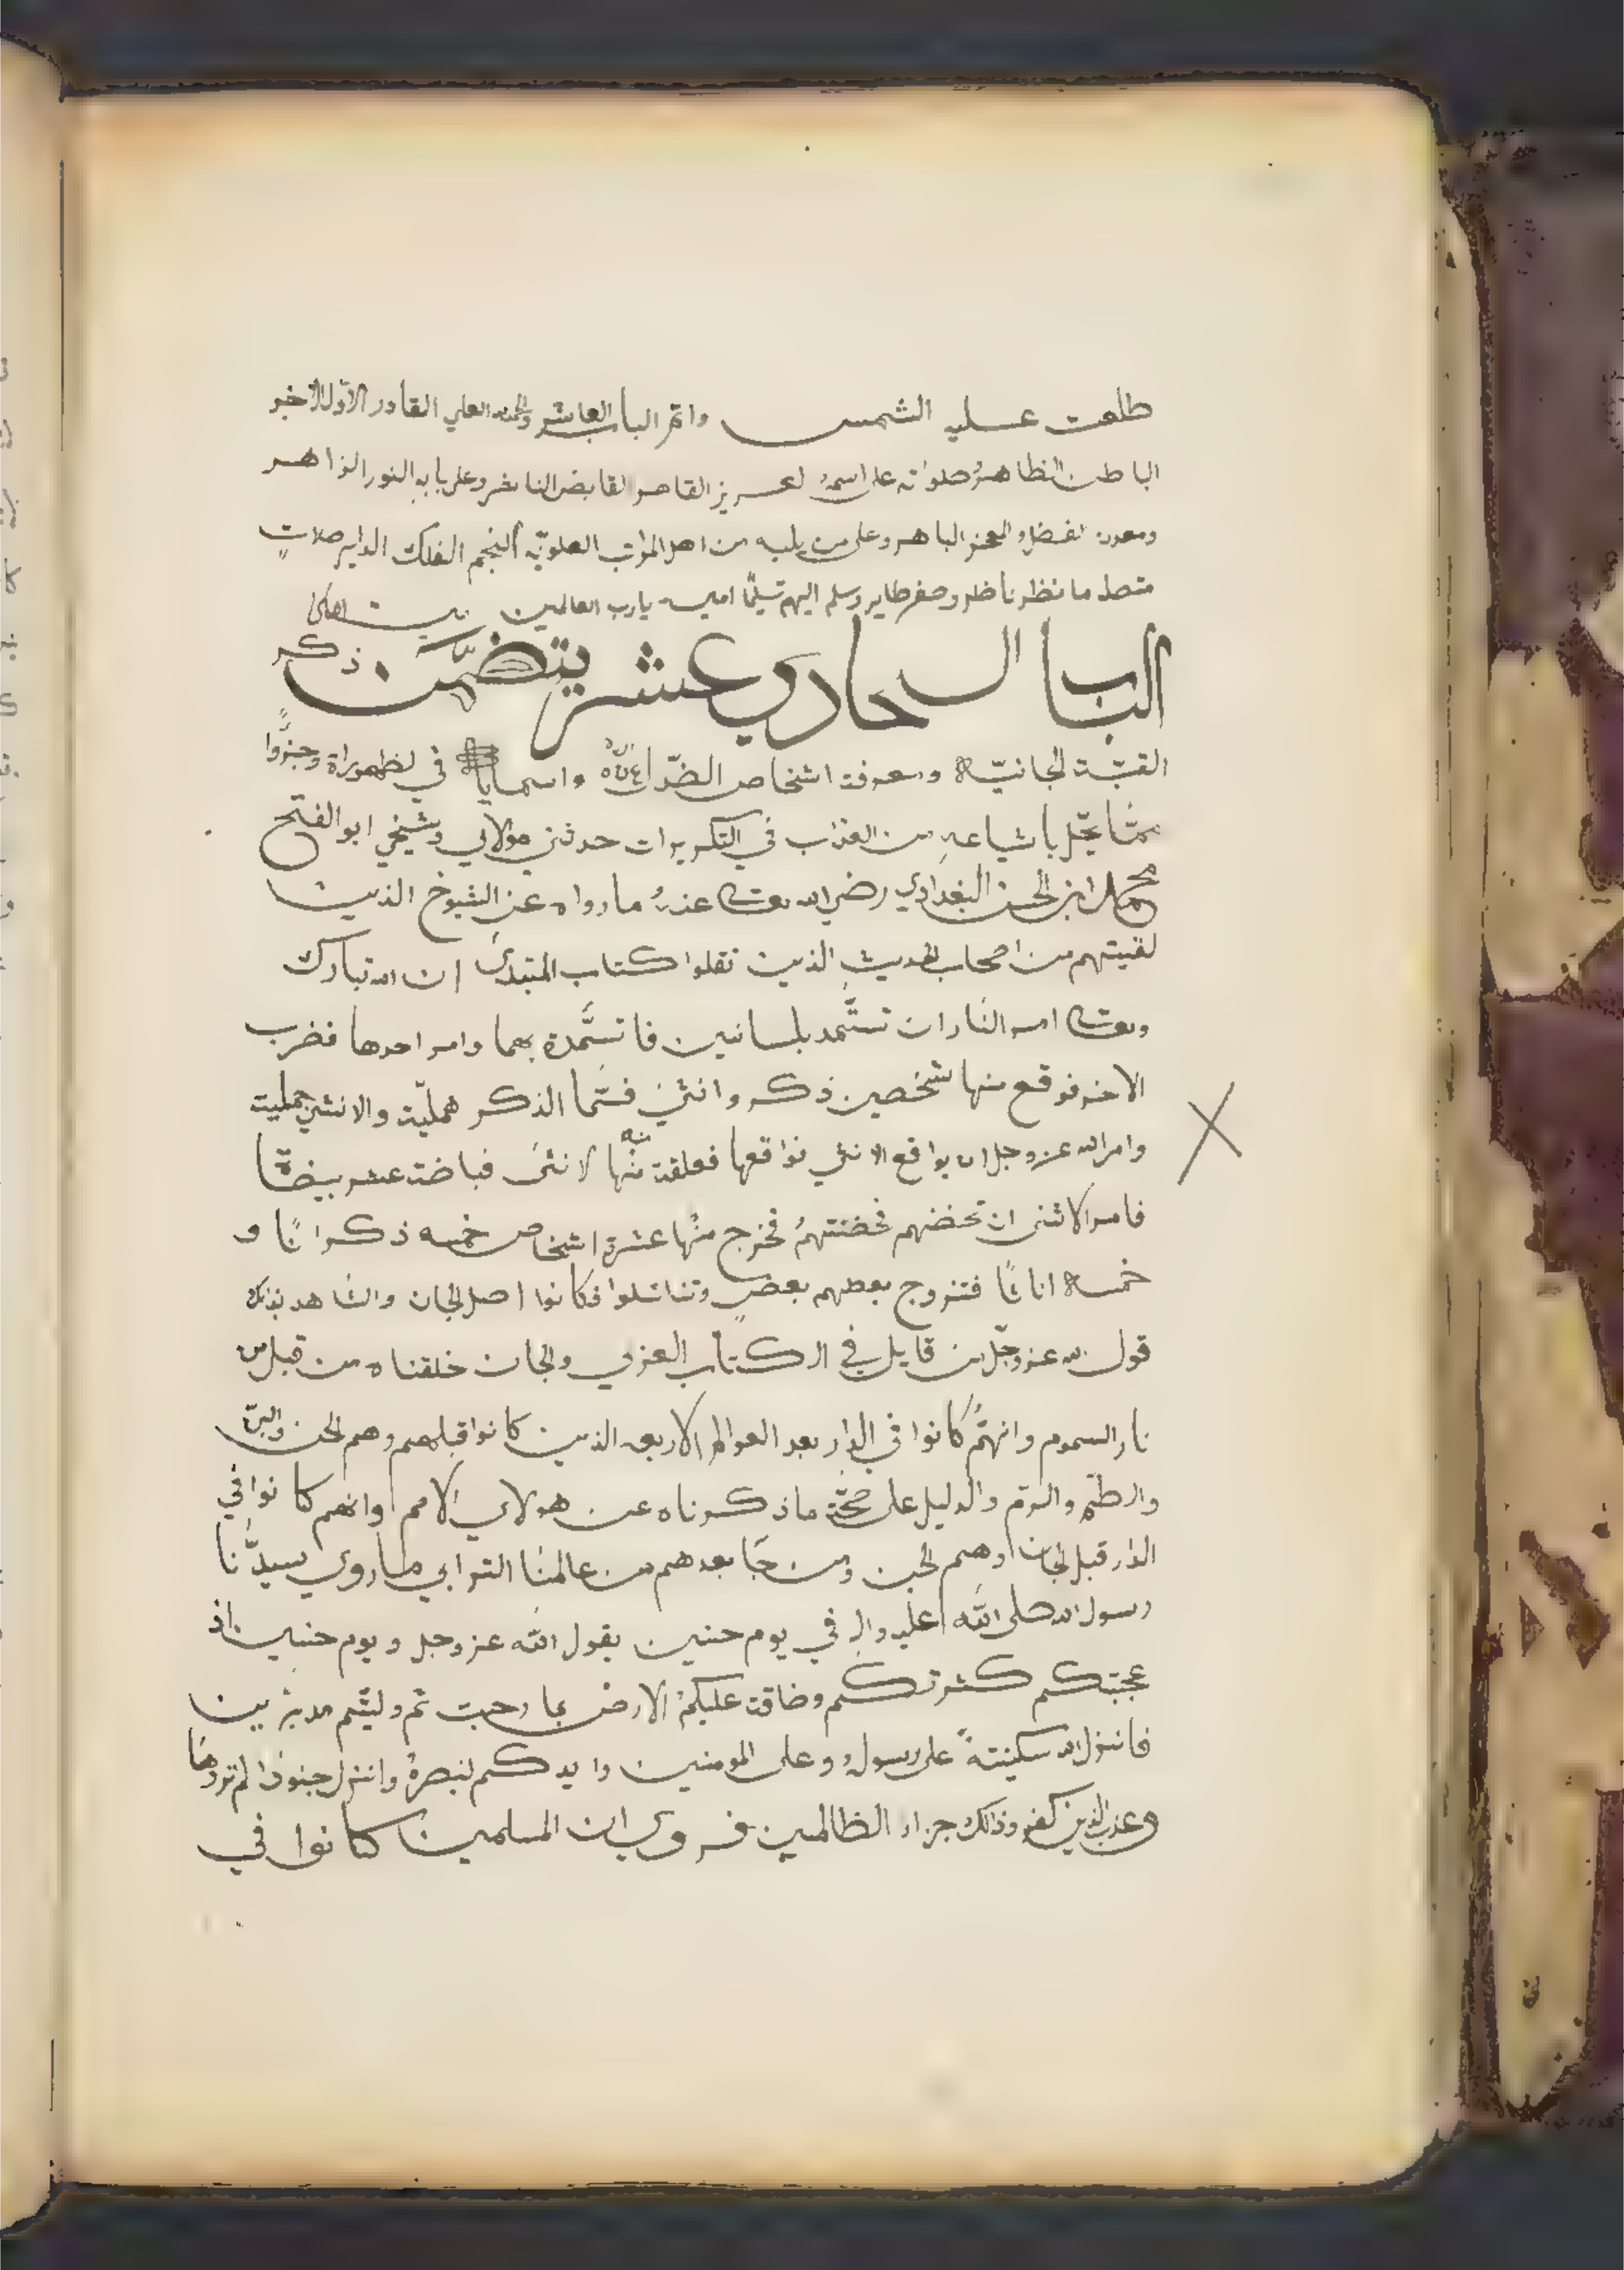 طلعت عليه الشمس واتم الباب العاشر والحمد لله العلي القادر الاول الاخر
الباطن الظاهر وصلواته على اسمه العزيز القاهر القابض الناشر وعلى بابه النور الزاهر
ومعدن الفضل والمعجز الباهر وعلى من يليه من اهل المراتب العلويه النجم الفلك الداير صلات
متصله ما نظر ناظر وصفر طاير وسلم اليهم تسليما امين يارب العالمين
الباب الحادي عشر يتضمن ذكر
القبّة الجانيّه ومعرفت اشخاص الضدّ لعنه الله واسمايه في لظهوراة وجنوا
ممّا يحّل باشياعه من العذاب في التكريرات حدثني مولاي وشيخي ابو الفتح
محمد ابن الحسن البغدادي رضي الله تعالى عنه ما رواه عن الشيوخ الذين
لقيتهم من اصحاب الحديث الذين نقلوا كتاب المبتدى ان الله تبارك
وتعالى امر النار ان تستّمد بلسانين فاتسّمدة بهما وامر احدها فضرب
الاخر فوقع منها شخصين ذكر وانثى فسّما الذكر هملّيت والانثى هملّيت
وامر الله عز وجل ان يواقع الانثي فواقعها فعلقت منه الانثى فباضت عشر بيضة
فامر الانثى ان تحضنهم فحضنتهم فخرج منها عشرة اشخاص خمسه ذكرانا و
خمسه اناثا فتزوج بعضهم بعض وتناسلوا فكانوا اصل الجان والشاهد بذلك
قول الله عز وجّل من قايل في الكتاب العزيز والجان خلقناه من قبل من
نار السموم وانهم كانوا في الدار بعد العوالم الاربعه الذين كانوا قبلهم وهم الحن والبنّ
والطم والرم والدليل على صحّة ما ذكرناه عن هولاي الامم وانهم كانوا في
الدار قبل الجان وهم الحن ومن جا بعدهم من عالمنا الترابي ما روي سيدنا
رسول الله صلى الله عليه واله في يوم حنين يقول الله عز وجل ويوم حنين اذ
عجبتكم كثرتكم وضاقت عليكم الارض بما رحبت ثم وليتم مدبرين
فانزل الله سكينته على رسوله وعلى المومنين وايدكم بنصره وانزل جنودا لم تروها
وعذب الذين كفرو وذالك جزاء الظالمين فروي ان المسلمين كانوا في